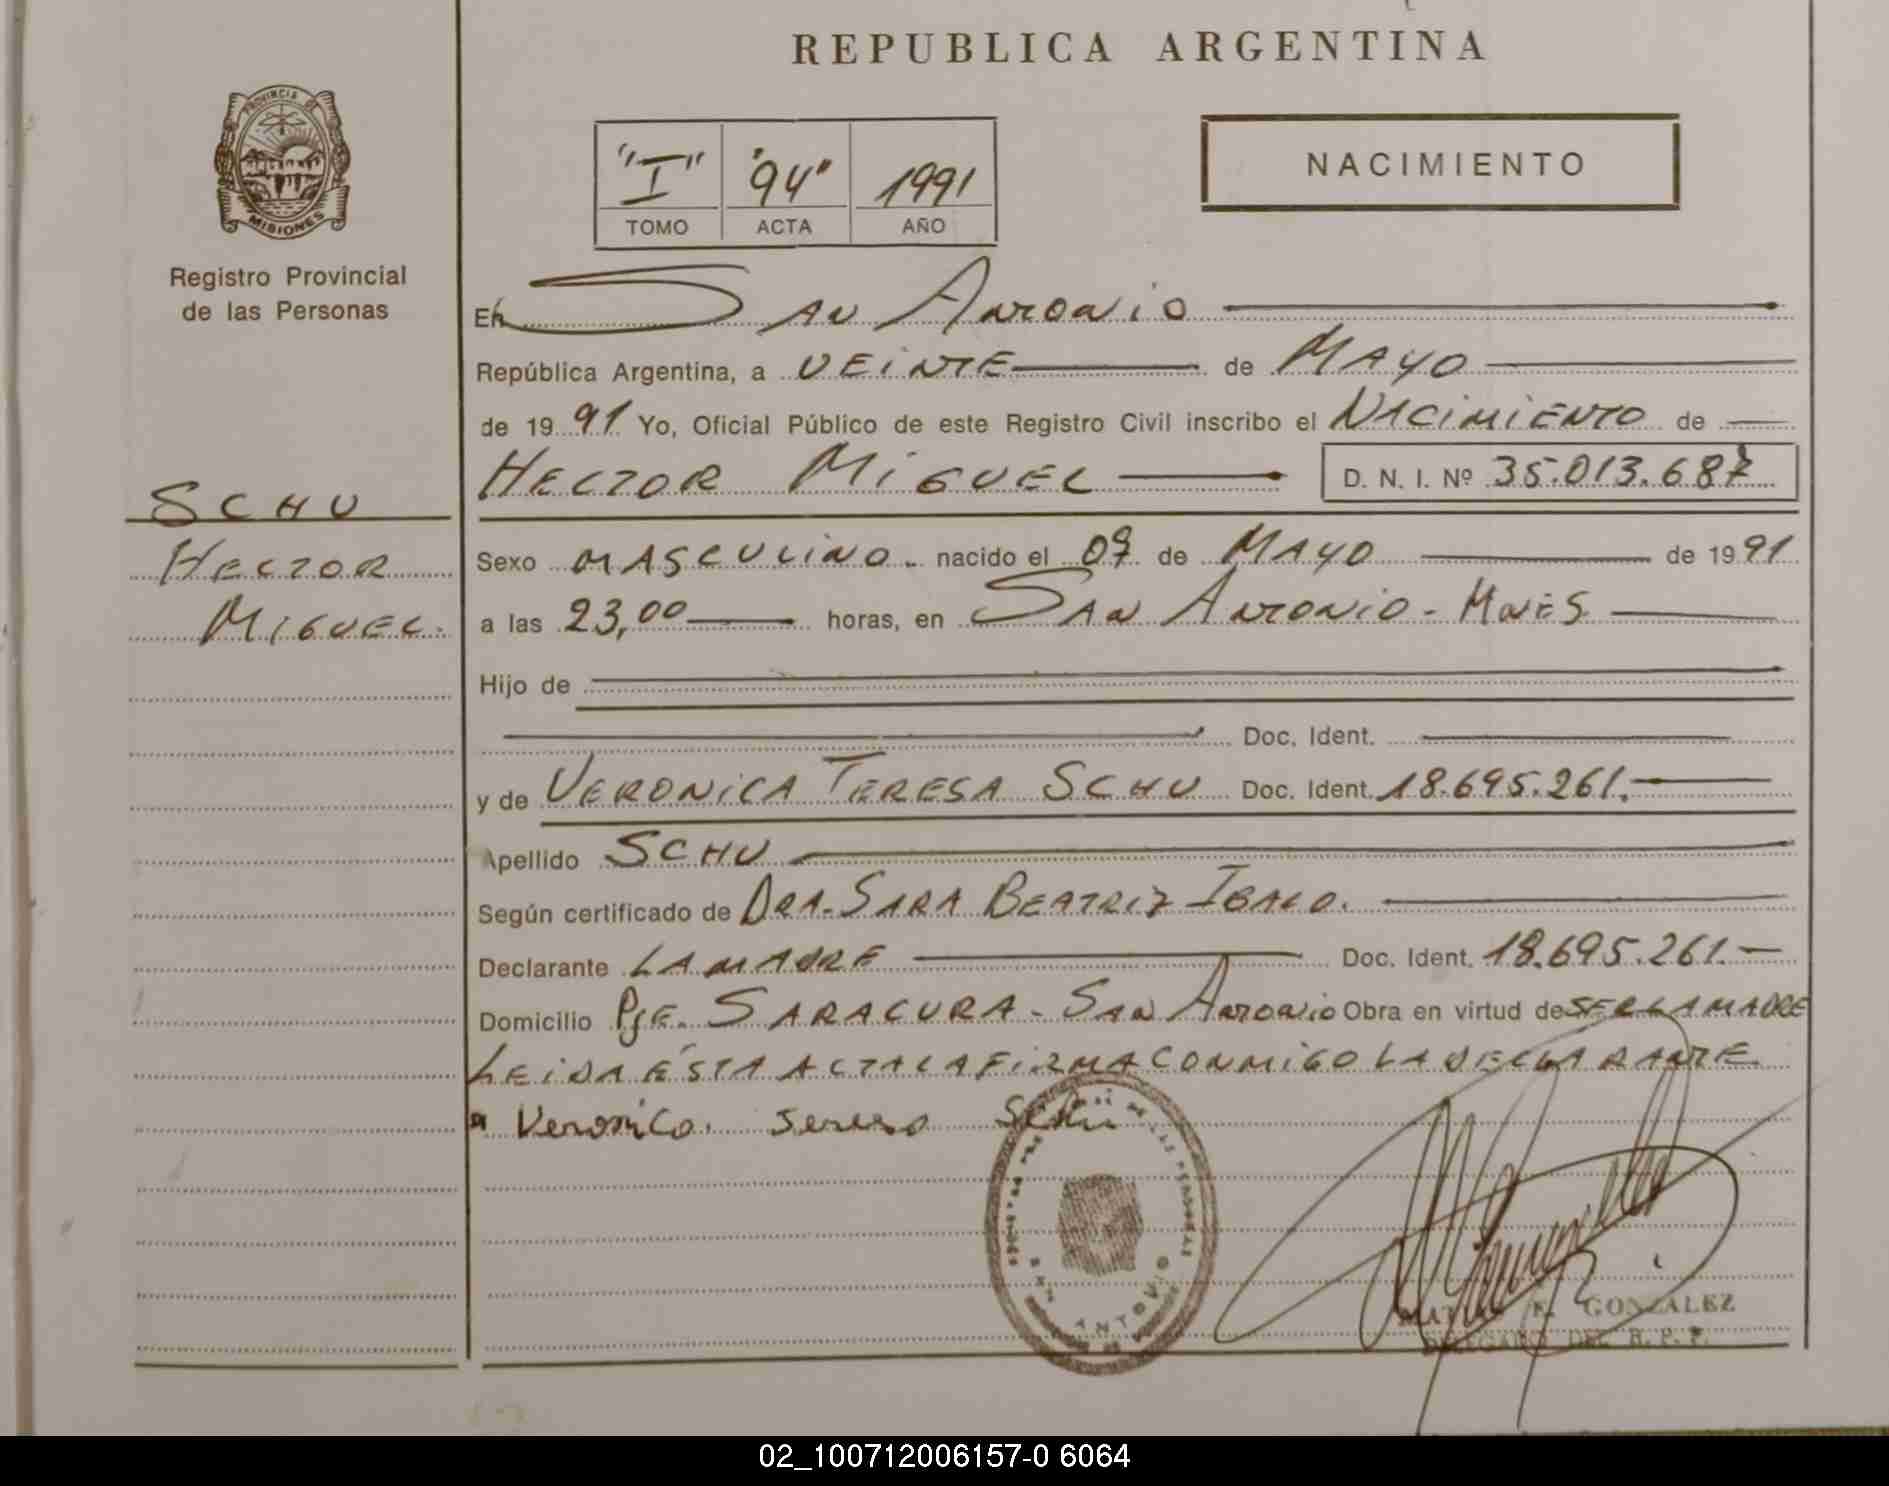 REPUBLICA ARGENTINA
PROVINCIA DE
MISIONES
Registro Provincial
de las Personas
"I" "94" 1991
TOMO ACTA AÑO
NACIMIENTO
En SAN ANTONIO
República Argentina, a VEINTE de MAYO
de 1991 Yo, Oficial Público de este Registro Civil inscribo el NACIMIENTO de
HECTOR MIGUEL D. N. I. Nº 35.013.687
SCHU
HECTOR
MIGUEL.
Sexo MASCULINO. nacido el de MAYO de 1991
a las 23,00 horas, en SAN ANTONIO - MNES
Hijo de
Doc. Ident.
y de VERONICA TERESA SCHU Doc. Ident. 18.695.261.
Apellido SCHU
Según certificado de DRA. SARA BEATRIZ
Declarante LA MADRE Doc. Ident. 18.695.261.
Domicilio PJE. SARACURA - SAN ANTONIO Obra en virtud de SER LA MADRE
LEIDA ÉSTA ACTA LA FIRMA CONMIGO LA DECLARANTE
Veronica Teresa Schu
F. GONZALEZ
DELEGADO DEL R. P. P.
02_100712006157-0 6064